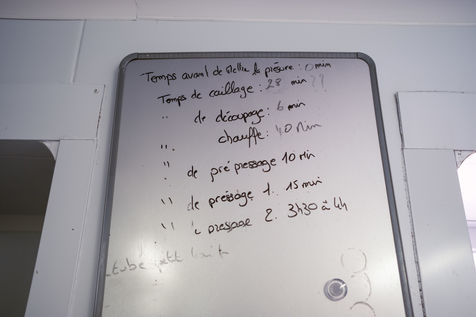 Temps avant de mettre la présure : 0 min
Temps de caillage : 28 min ??
" de découpage : 6 min
" chauffe : 40 min
" de pré pressage 10 min
" de pressage 1. 15 min
" pressage 2. 3h30 à 4h
tube petit